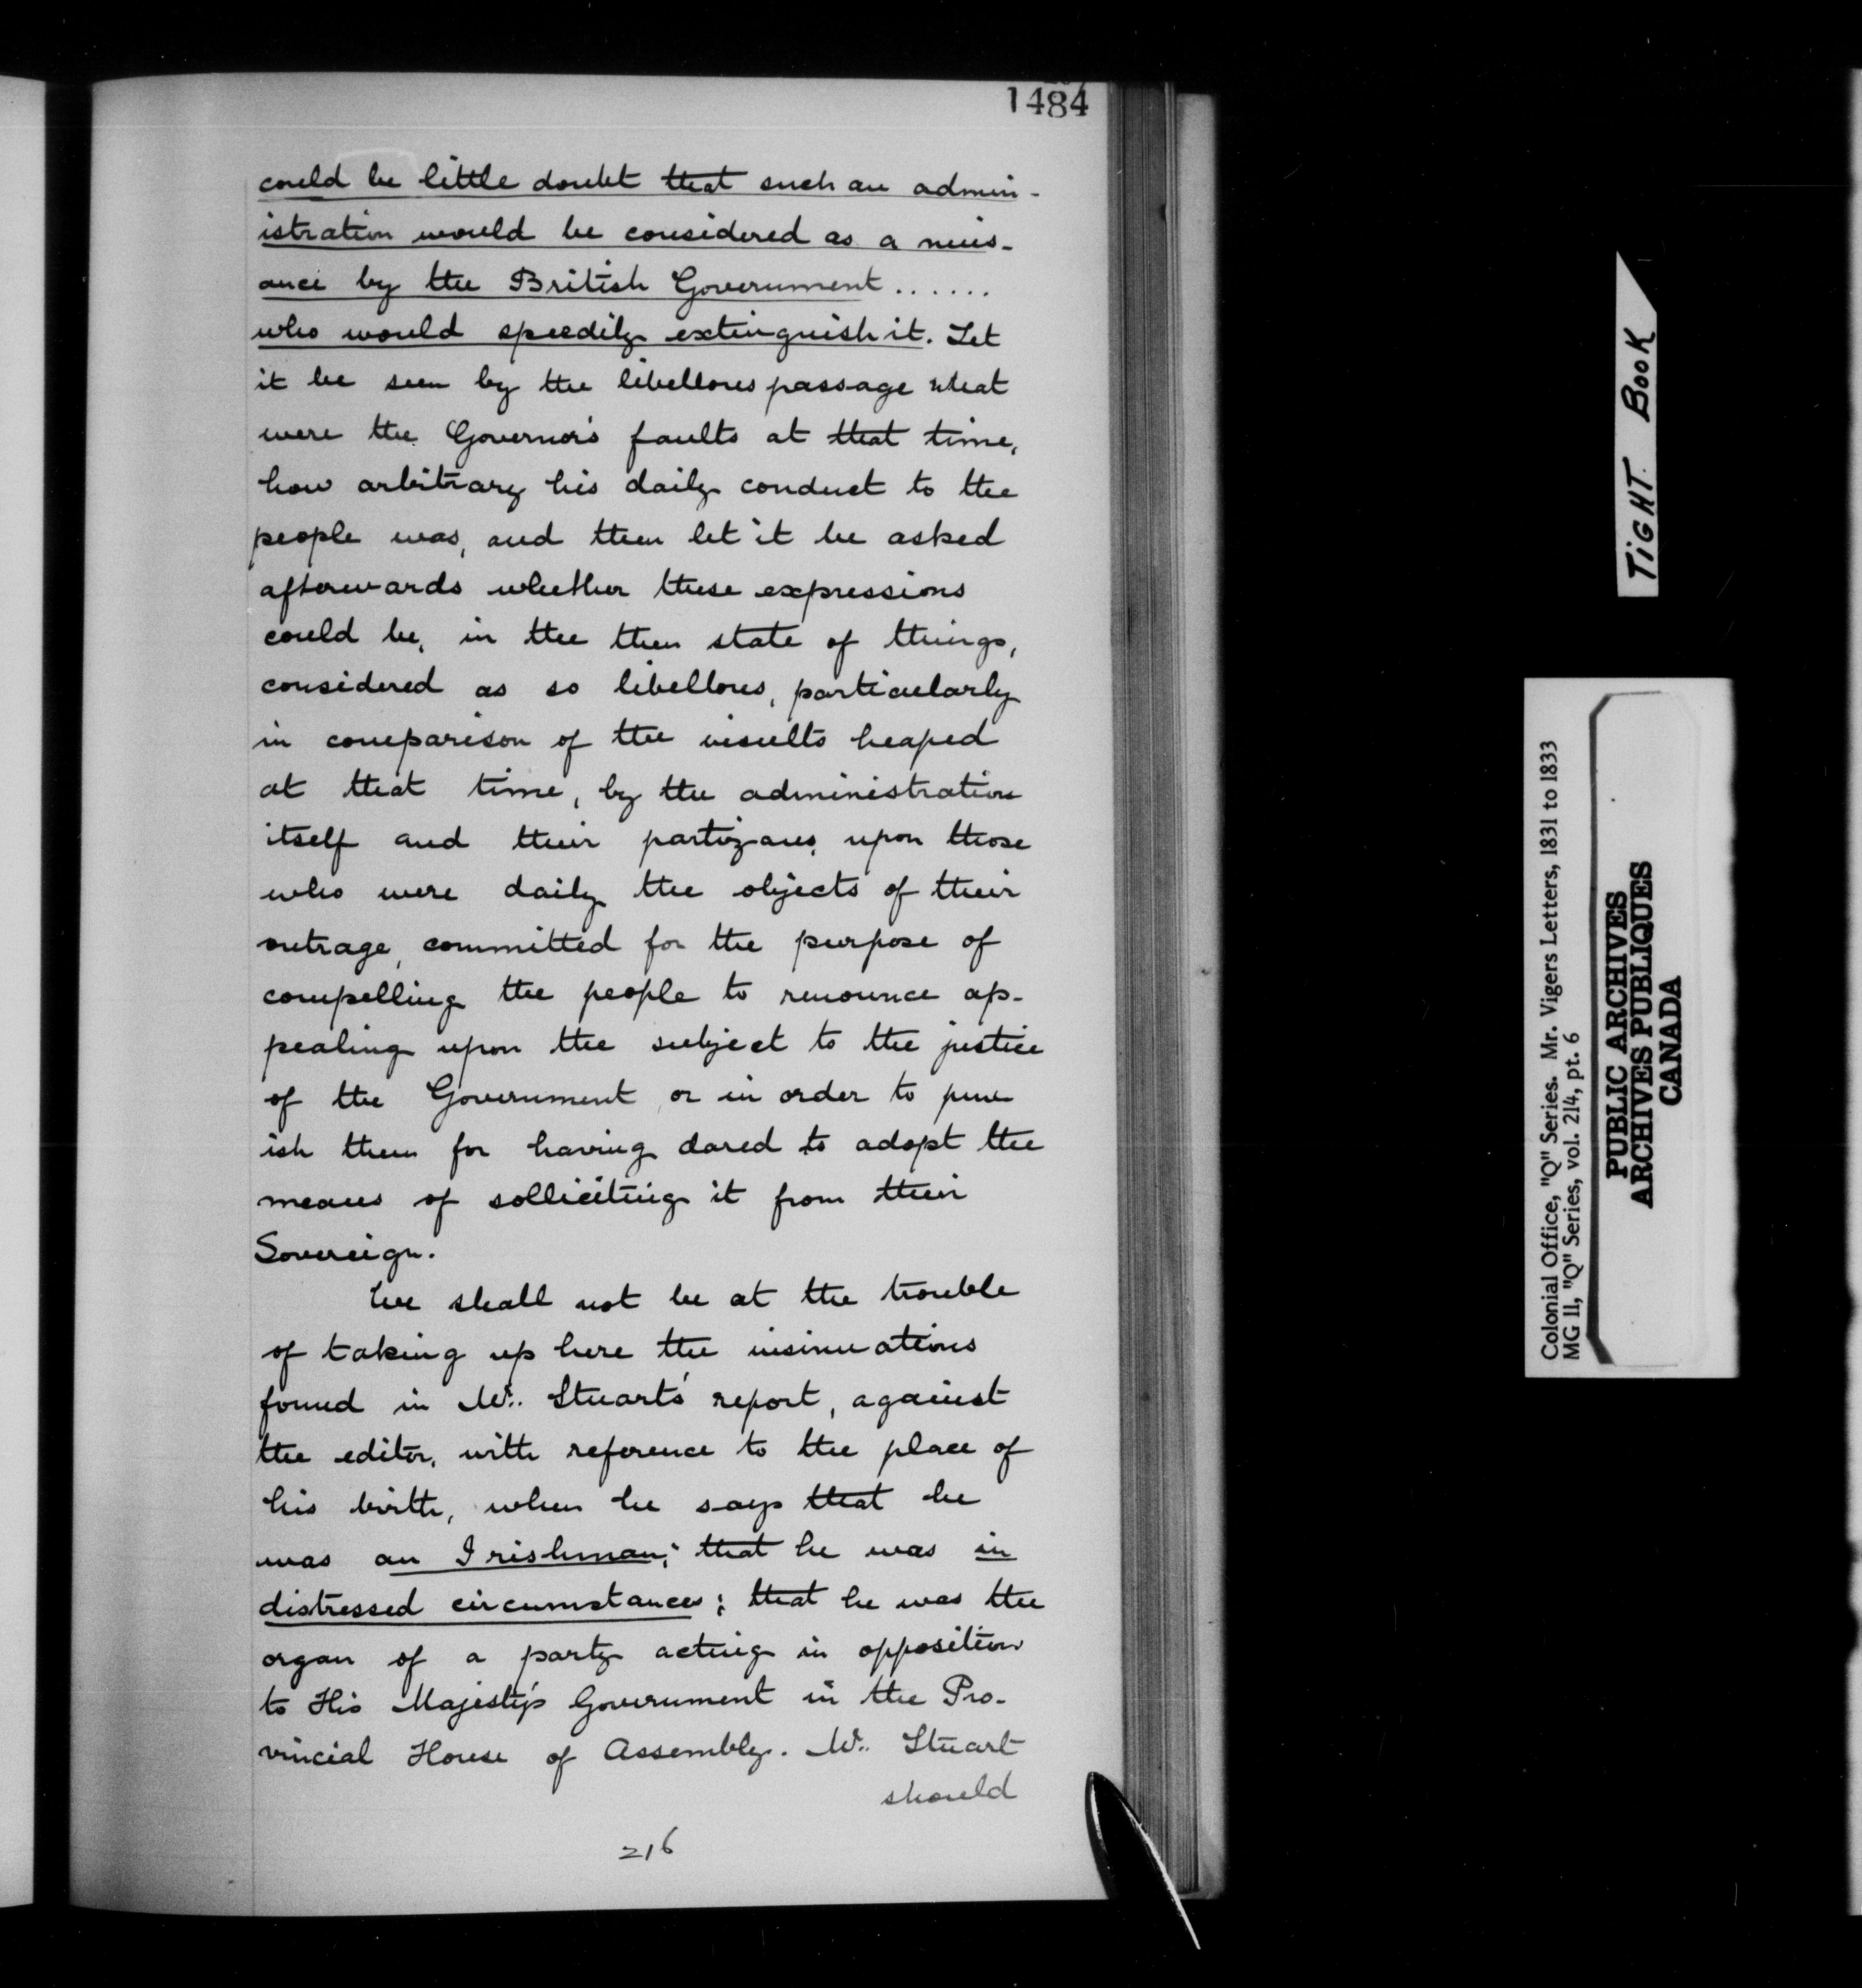 1484
could be little doubt that such an admin-
istration would be considered as a nuis-
ance by the British Government......
who would speedily extinguish it. Let
it be seen by the libellous passage what
were the Governor's faults at that time,
how arbitrary his daily conduct to the
people was, and then let it be asked
afterwards whether these expressions
could be, in the then state of things,
considered as so libellous, particularly
in comparison of the insults heaped
at that time, by the administration
itself and their partizans, upon those
who were daily the objects of their
outrage, committed for the purpose of
compelling the people to renounce ap-
pealing upon the subject to the justice
of the Government, or in order to pun
ish them for having dared to adopt the
means of solliciting it from their
Sovereign.
We shall not be at the trouble
of taking up here the insinuations
found in Mr. Stuart's report, against
the editor, with reference to the place of
his birth, when he says that he
was an Irishman; that he was in
distressed circumstances; that he was the
organ of a party acting in opposition
to His Majesty's Government in the Pro-
vincial House of Assembly. Mr. Stuart
should
216
TIGHT BOOK
Colonial Office, "Q" Series. Mr. Vigers Letters, 1831 to 1833
MG 11, "Q" Series, vol. 214, pt. 6
PUBLIC ARCHIVES
ARCHIVES PUBLIQUES
CANADA